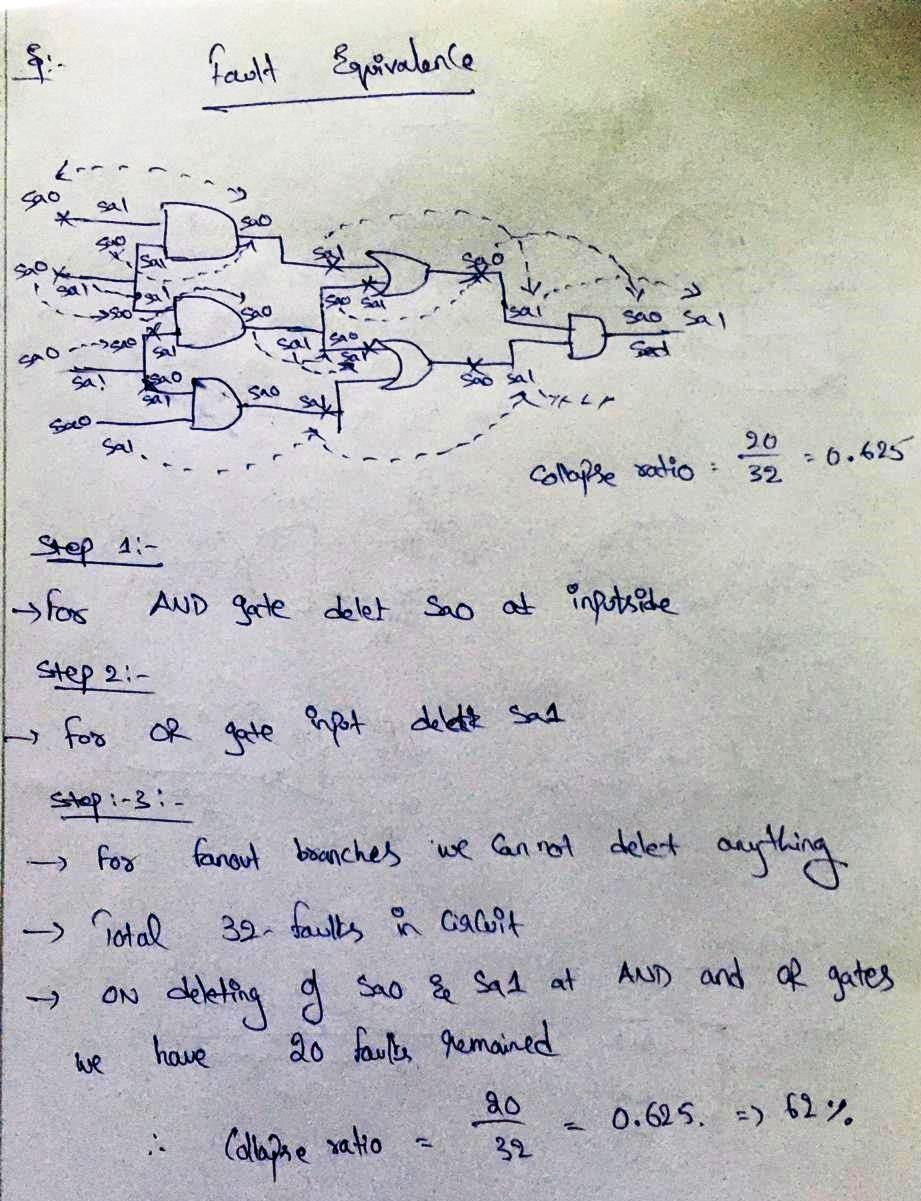 Q:-
Fault Equivalence
sa0 sa1 sa0
sa0 sa1 sa1
sa0 sa0
sa0 sa1 sa1 sa0 sa0 sa1
sa0 sa0 sa1 sa1 sa0 sa1
sa0 sa0 sa1 sa1 sa0 sa1 sa1
sa1 sa0 sa0 sa1
sa0 sa1 sa0 sa1
sa1.
Collapse ratio = 20/32 = 0.625
Step 1:-
→ for AND gate delet Sa0 at inputside
Step 2:-
→ for OR gate input delet Sa1
Step:-3:-
→ For fanout branches we Can not delet anything
→ Total 32- faults in Circuit
→ ON deleting of Sa0 & Sa1 at AND and OR gates
we have 20 faults remained
∴ Collapse ratio = 20/32 = 0.625. => 62%.